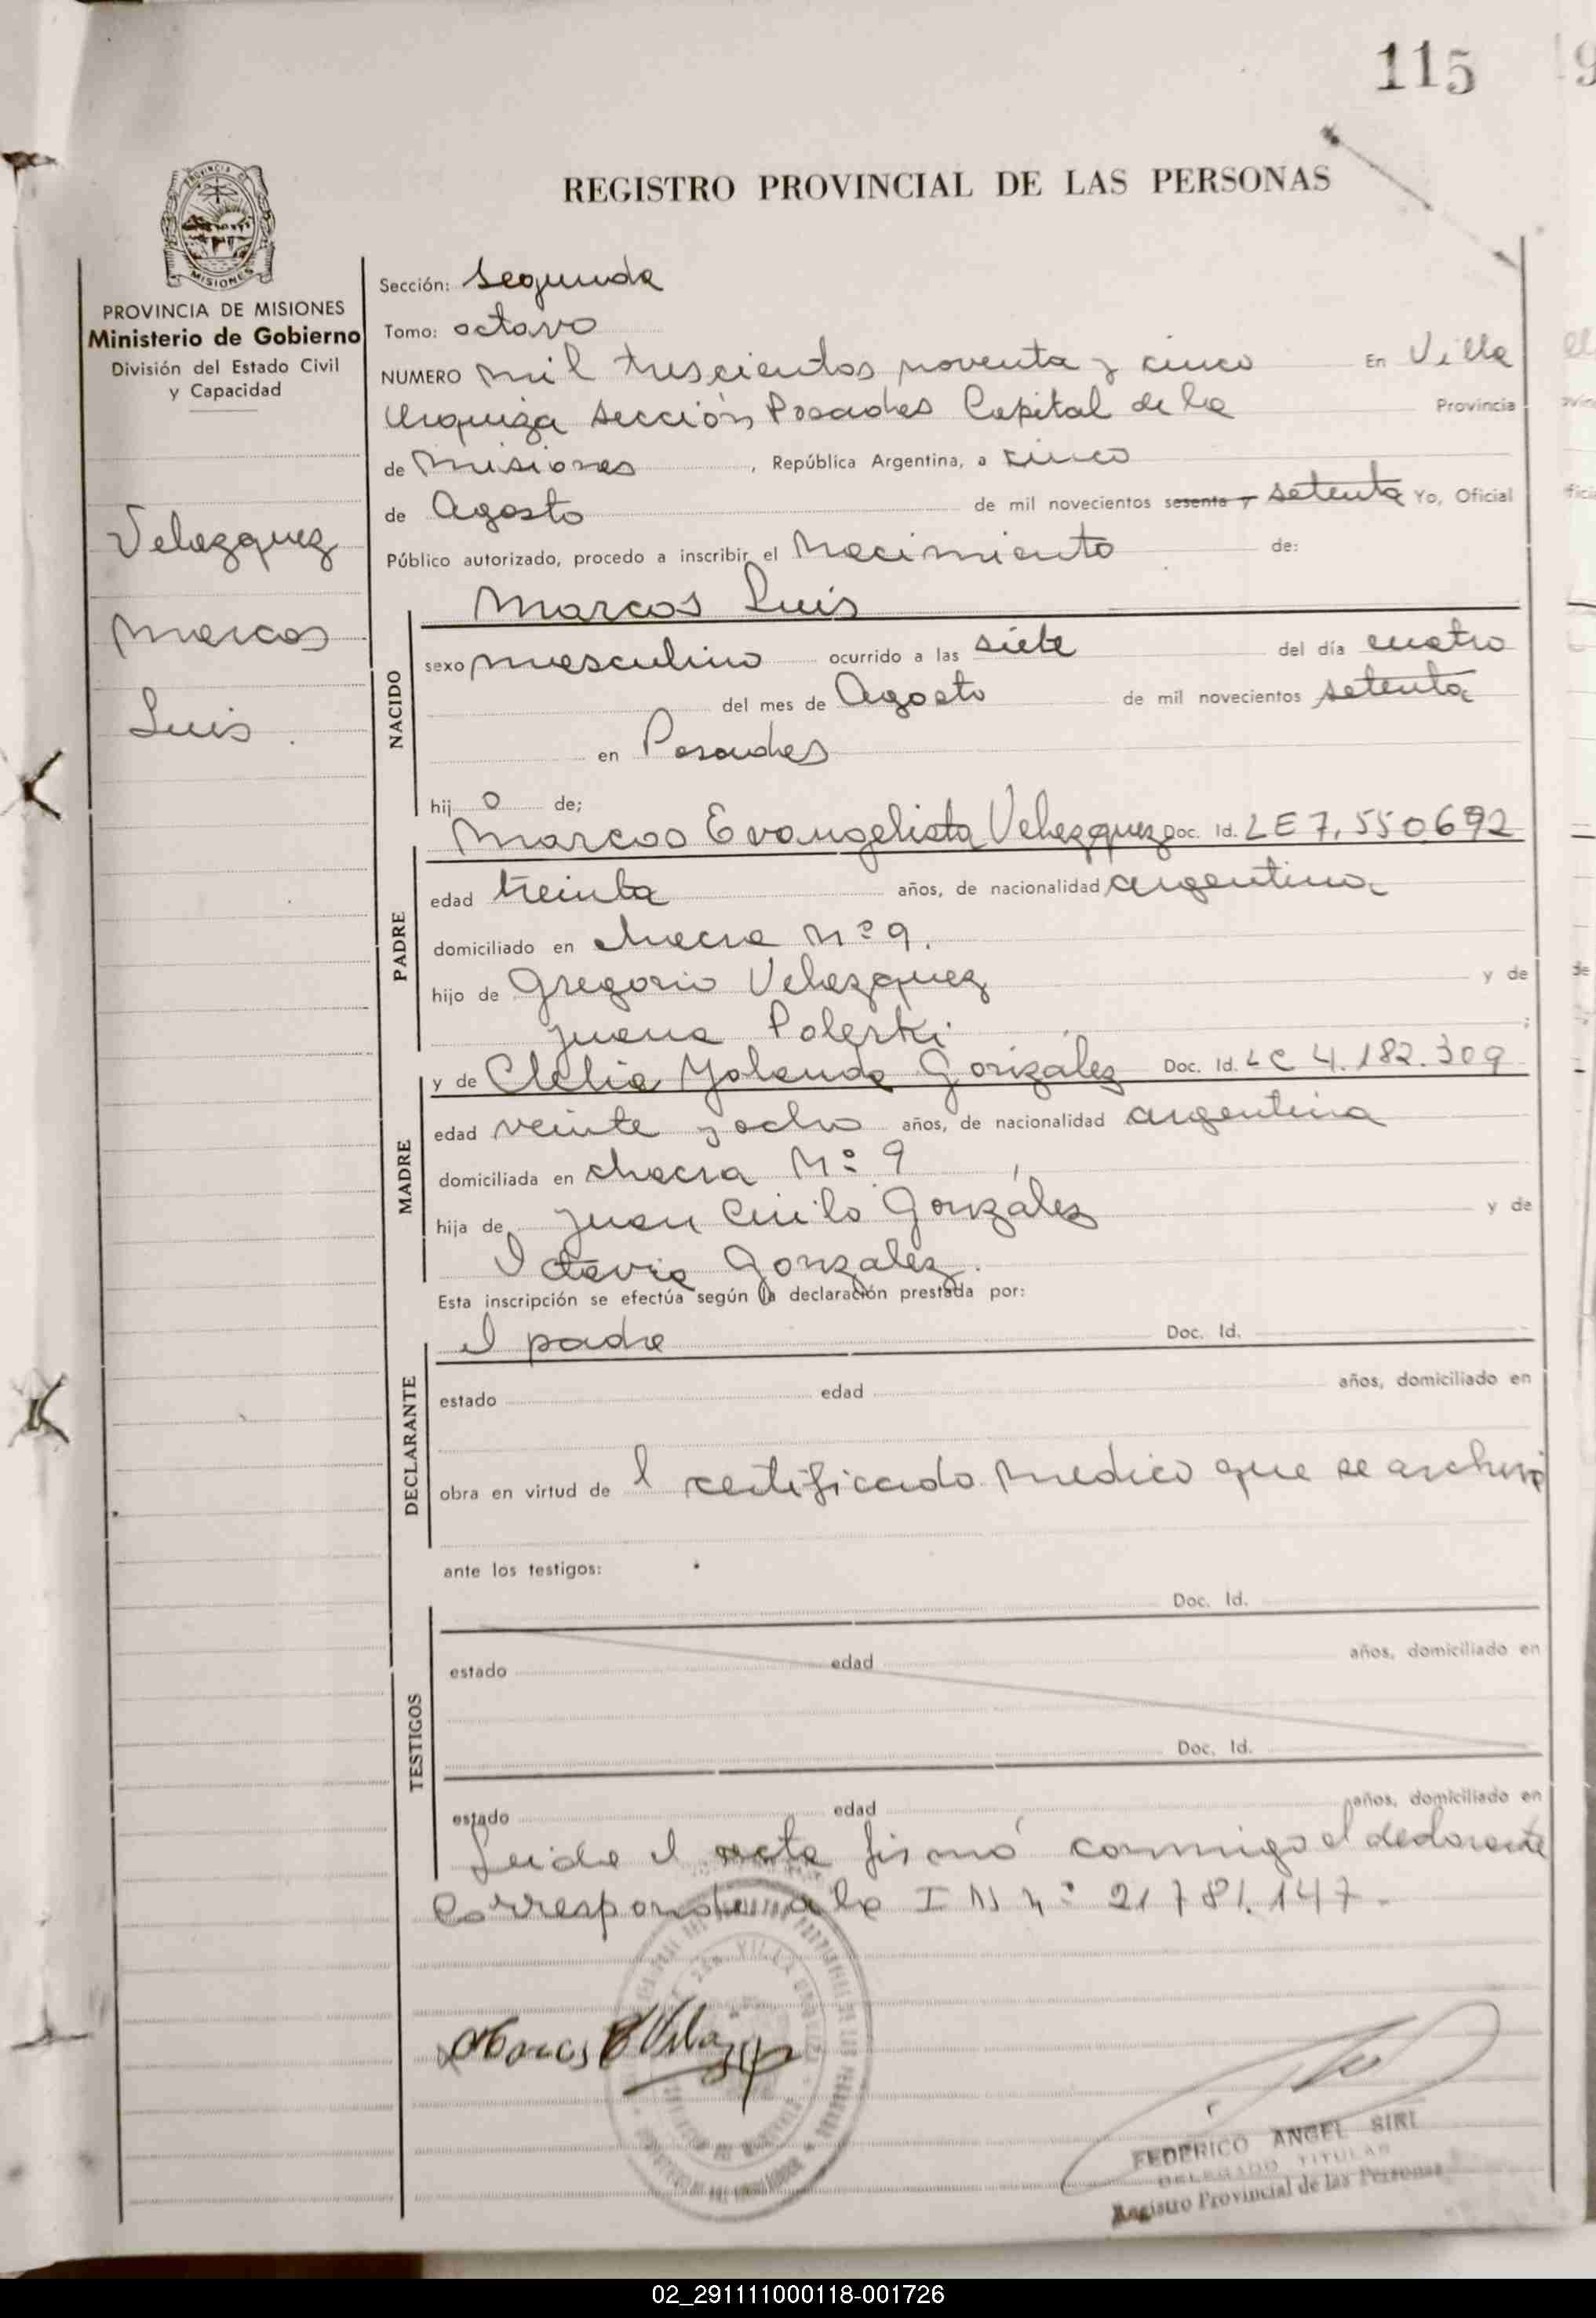 115
REGISTRO PROVINCIAL DE LAS PERSONAS
PROVINCIA DE MISIONES
Ministerio de Gobierno
División del Estado Civil
y Capacidad
Velazquez
Marcos
Luis
Sección: Segunda
Tomo: octavo
NUMERO mil trescientos noventa y cinco En Villa
Urquiza sección Posadas Capital de la Provincia
de Misiones, República Argentina, a cinco
de Agosto de mil novecientos sesenta y setenta Yo, Oficial
Público autorizado, procedo a inscribir el Nacimiento de:
Marcos Luis
NACIDO
sexo masculino ocurrido a las siete del día cuatro
del mes de Agosto de mil novecientos setenta
en Posadas
hijo de;
Marcos Evangelista Velazquez Doc. Id. LE 7.550.692
PADRE
edad treinta años, de nacionalidad argentina
domiciliado en chacra Nº 9.
hijo de Gregorio Velazquez y de
Juana
y de Clelia Yolanda González Doc. Id. LC 4.182.309
MADRE
edad veinte y ocho años, de nacionalidad argentina
domiciliada en chacra Nº 9
hija de Juan Cirilo González y de
Octavia Gonzalez.
Esta inscripción se efectúa según la declaración prestada por:
el padre Doc. Id.
DECLARANTE
estado edad años, domiciliado en
obra en virtud de l certificado medico que se archiva
ante los testigos:
Doc. Id.
TESTIGOS
estado edad años, domiciliado en
Doc. Id.
estado edad años, domiciliado en
Leida el acta firmó conmigo el declarante
Corresponde a la I N nº 21.781.147.
Marcos E Velazquez
FEDERICO ANGEL SIRI
DELEGADO TITULAR
Registro Provincial de las Personas
02_291111000118-001726